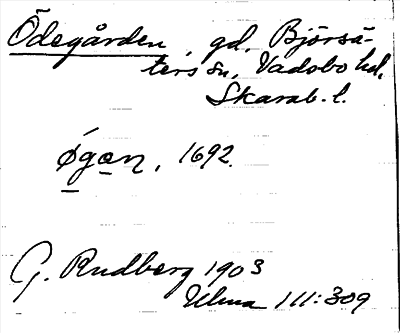 Ödegården, gd, Björsä-
ters sn, Vadsbo hd,
Skarab. l.
øgan, 1692.
G. Rudberg 1903
Ulma 111:309